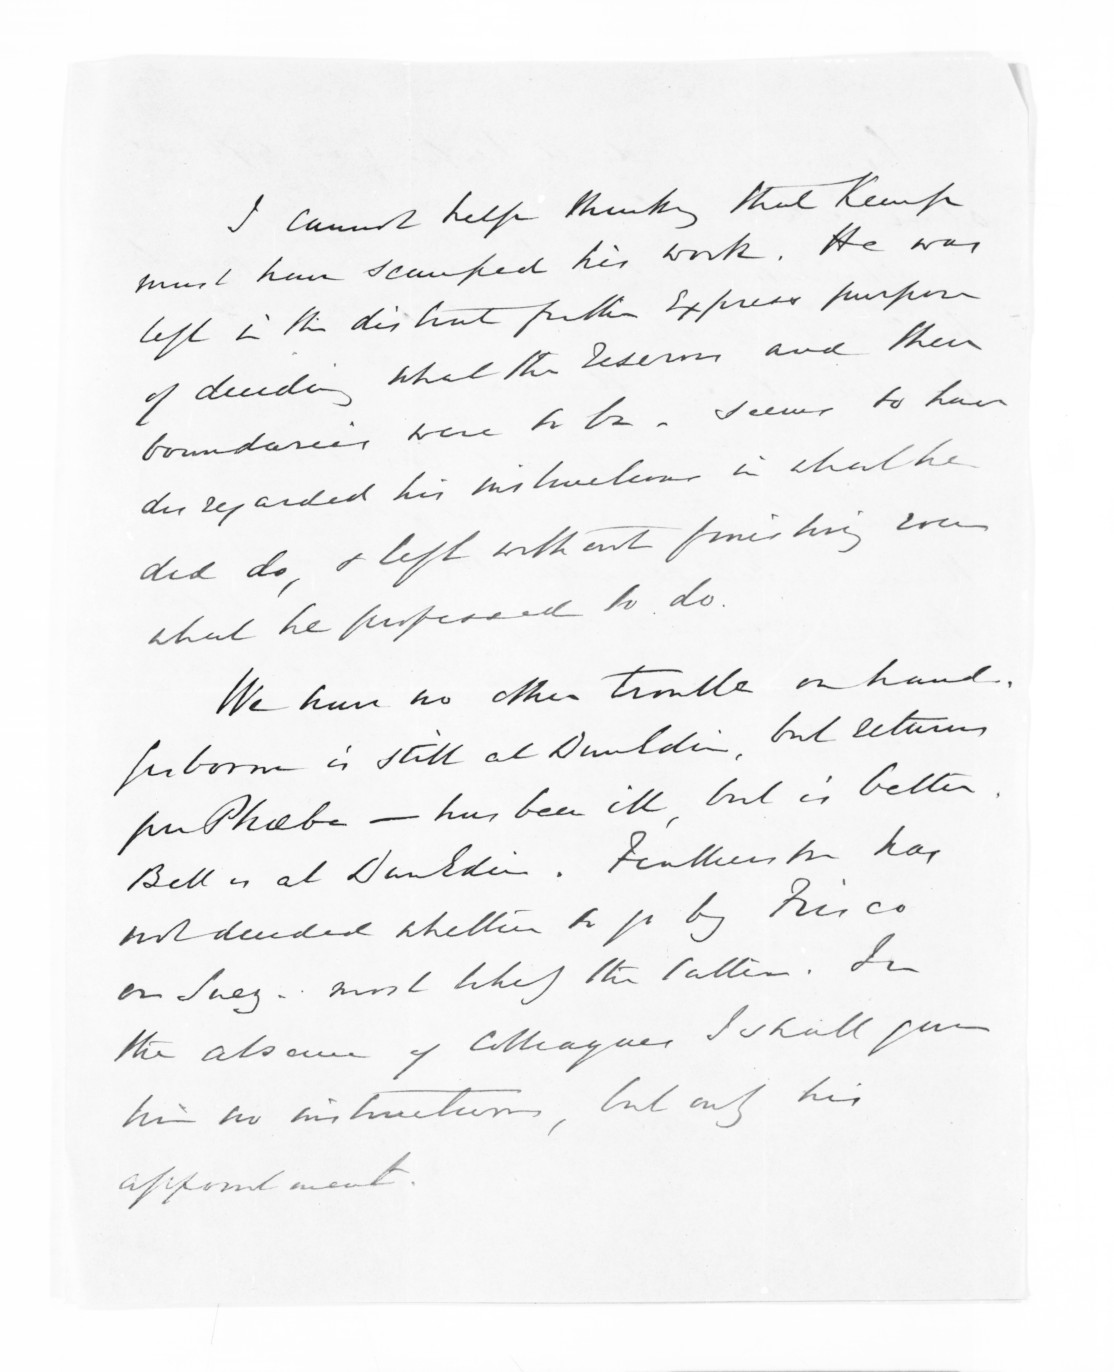 I cannot help thinking that Kemp
must have scamped his work. He was
left in the district for the express purpose
of deciding what the reserves and their
boundaries were to be. seems to have
disregarded his instructions in what he
did do, & left without finishing even
what he professed to do.
We have no other trouble on hand.
Gisborne is still at Dunedin, but returns
per Phœbe — has been ill, but is better.
Bell is at Dunedin. Featherston has
not decided whether to go by Frisco
or Suez - most likely the latter. In
the absence of Colleagues I shall give
him no instructions, but only his
appointment.